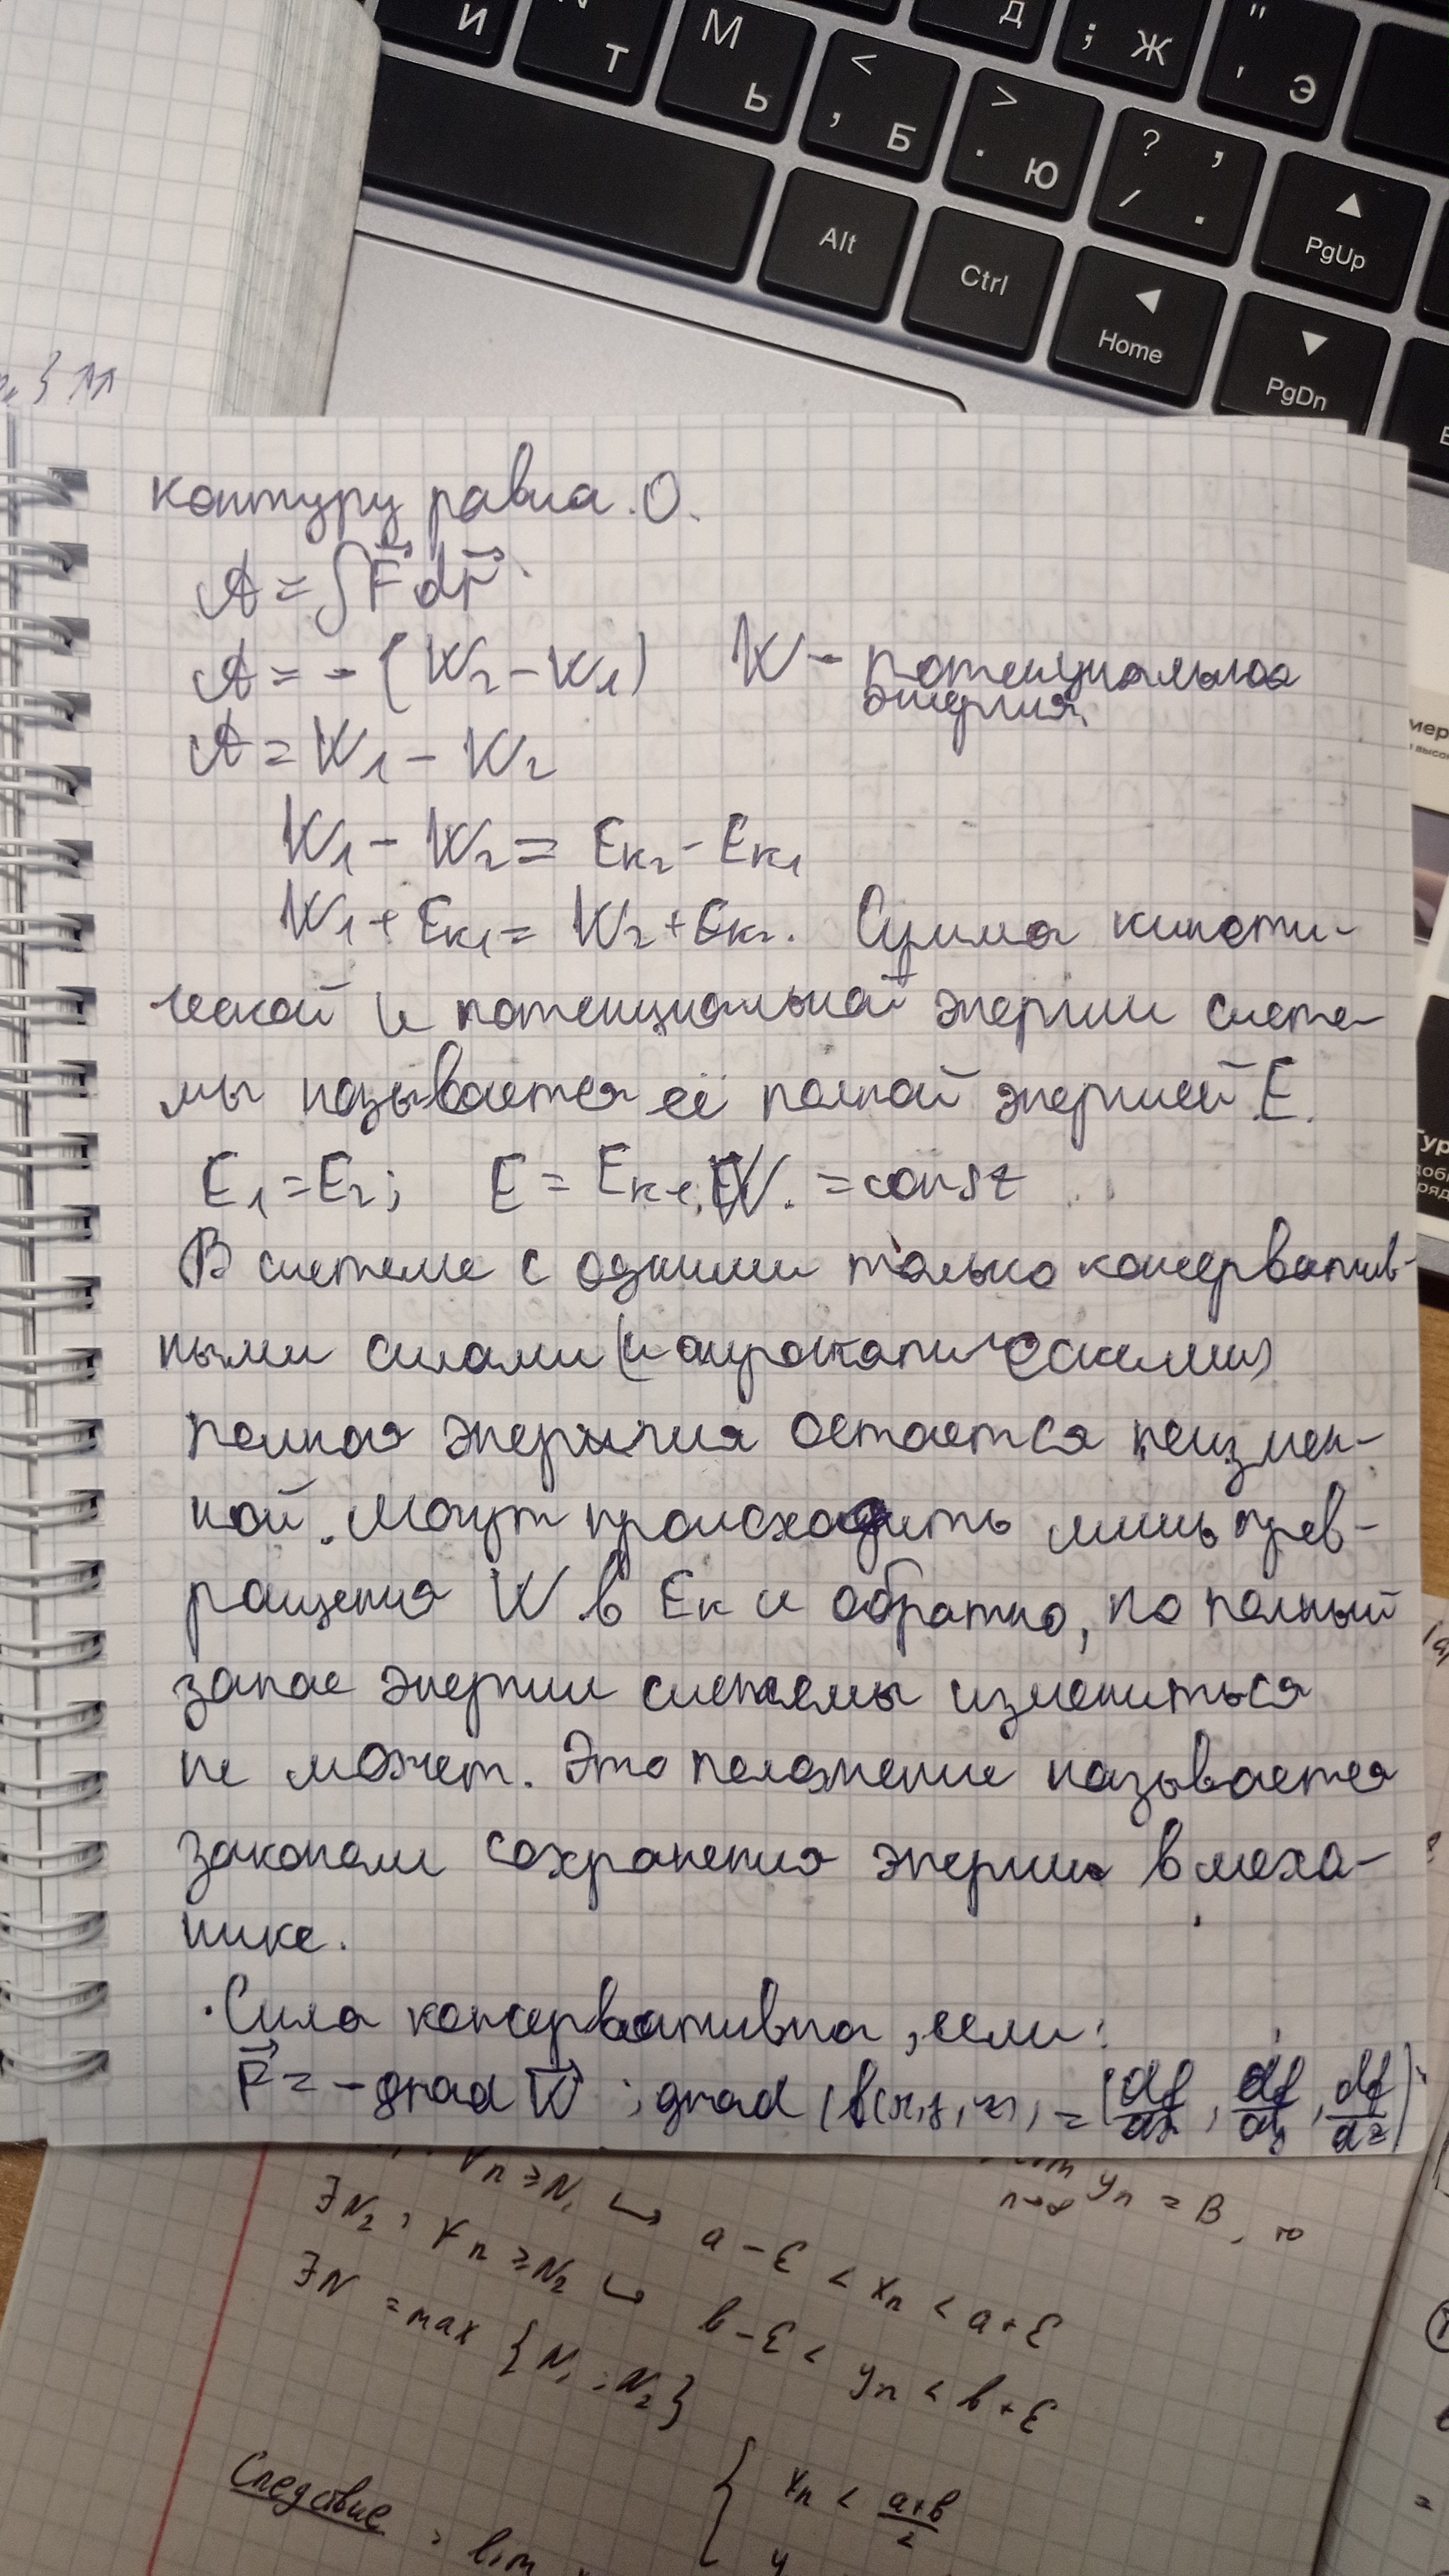 И
Т
М
Ь
<
, Б
Д
; Ж
"
' Э
>
. Ю
? ,
/ .
Alt
Ctrl
▲
PgUp
◀
Home
▼
PgDn
контуру равна 0.
A = ∫F⃗ dr⃗
A = - (W₂ - W₁) W - потенциальная
энергия
A = W₁ - W₂
W₁ - W₂ = Eк₂ - Eк₁
W₁ + Eк₁ = W₂ + Eк₂. Сумма кинети-
ческой и потенциальной энергии систе-
мы называется её полной энергией E.
E₁ = E₂; E = Eк + W. = const
В системе с одними только консерватив-
ными силами (и гироскопическими)
полная энергия остается неизмен-
ной. Могут происходить лишь прев-
ращения W в Eк и обратно, но полный
запас энергии системы измениться
не может. Это положение называется
законом сохранения энергии в меха-
нике.
· Сила консервативна, если:
F⃗ = - grad W⃗ ; grad (f(x, y, z)) = (df/dx, df/dy, df/dz)
∀n ≥ N₁ ↪ a - ε < xₙ < a + ε
yₙ = B, то
∃N₂, ∀n ≥ N₂ ↪ b - ε < yₙ < b + ε
∃N = max {N₁; N₂}
Следствие: lim
{ xₙ < a+b/2